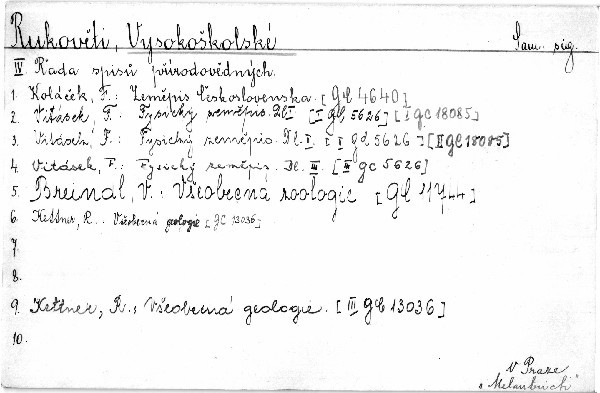 Rukověti, Vysokoškolské
Sam. sig.
IV Řada spisů přírodovědných.
1. Koláček, F.: Zeměpis Československa. [Gb 4640]
2. Vitásek, F.: Fysický zeměpis. Dl I [I Gb 5626] [I gc 18085]
3. Vitásek, F.: Fysický zeměpis. Dl. II. [II gd 5626] [II gc 18085]
4. Vitásek, F.: Fysický zeměpis. Dl. III. [III gc 5626]
5. Breindl, V.: Všeobecná zoologie [Gb 11744]
6. Kettner, R.. Všeobecná geologie [JC 13036]
7
8.
9. Kettner, R., Všeobecná geologie. [III GC 13036]
10.
V Praze
"Melantrich"